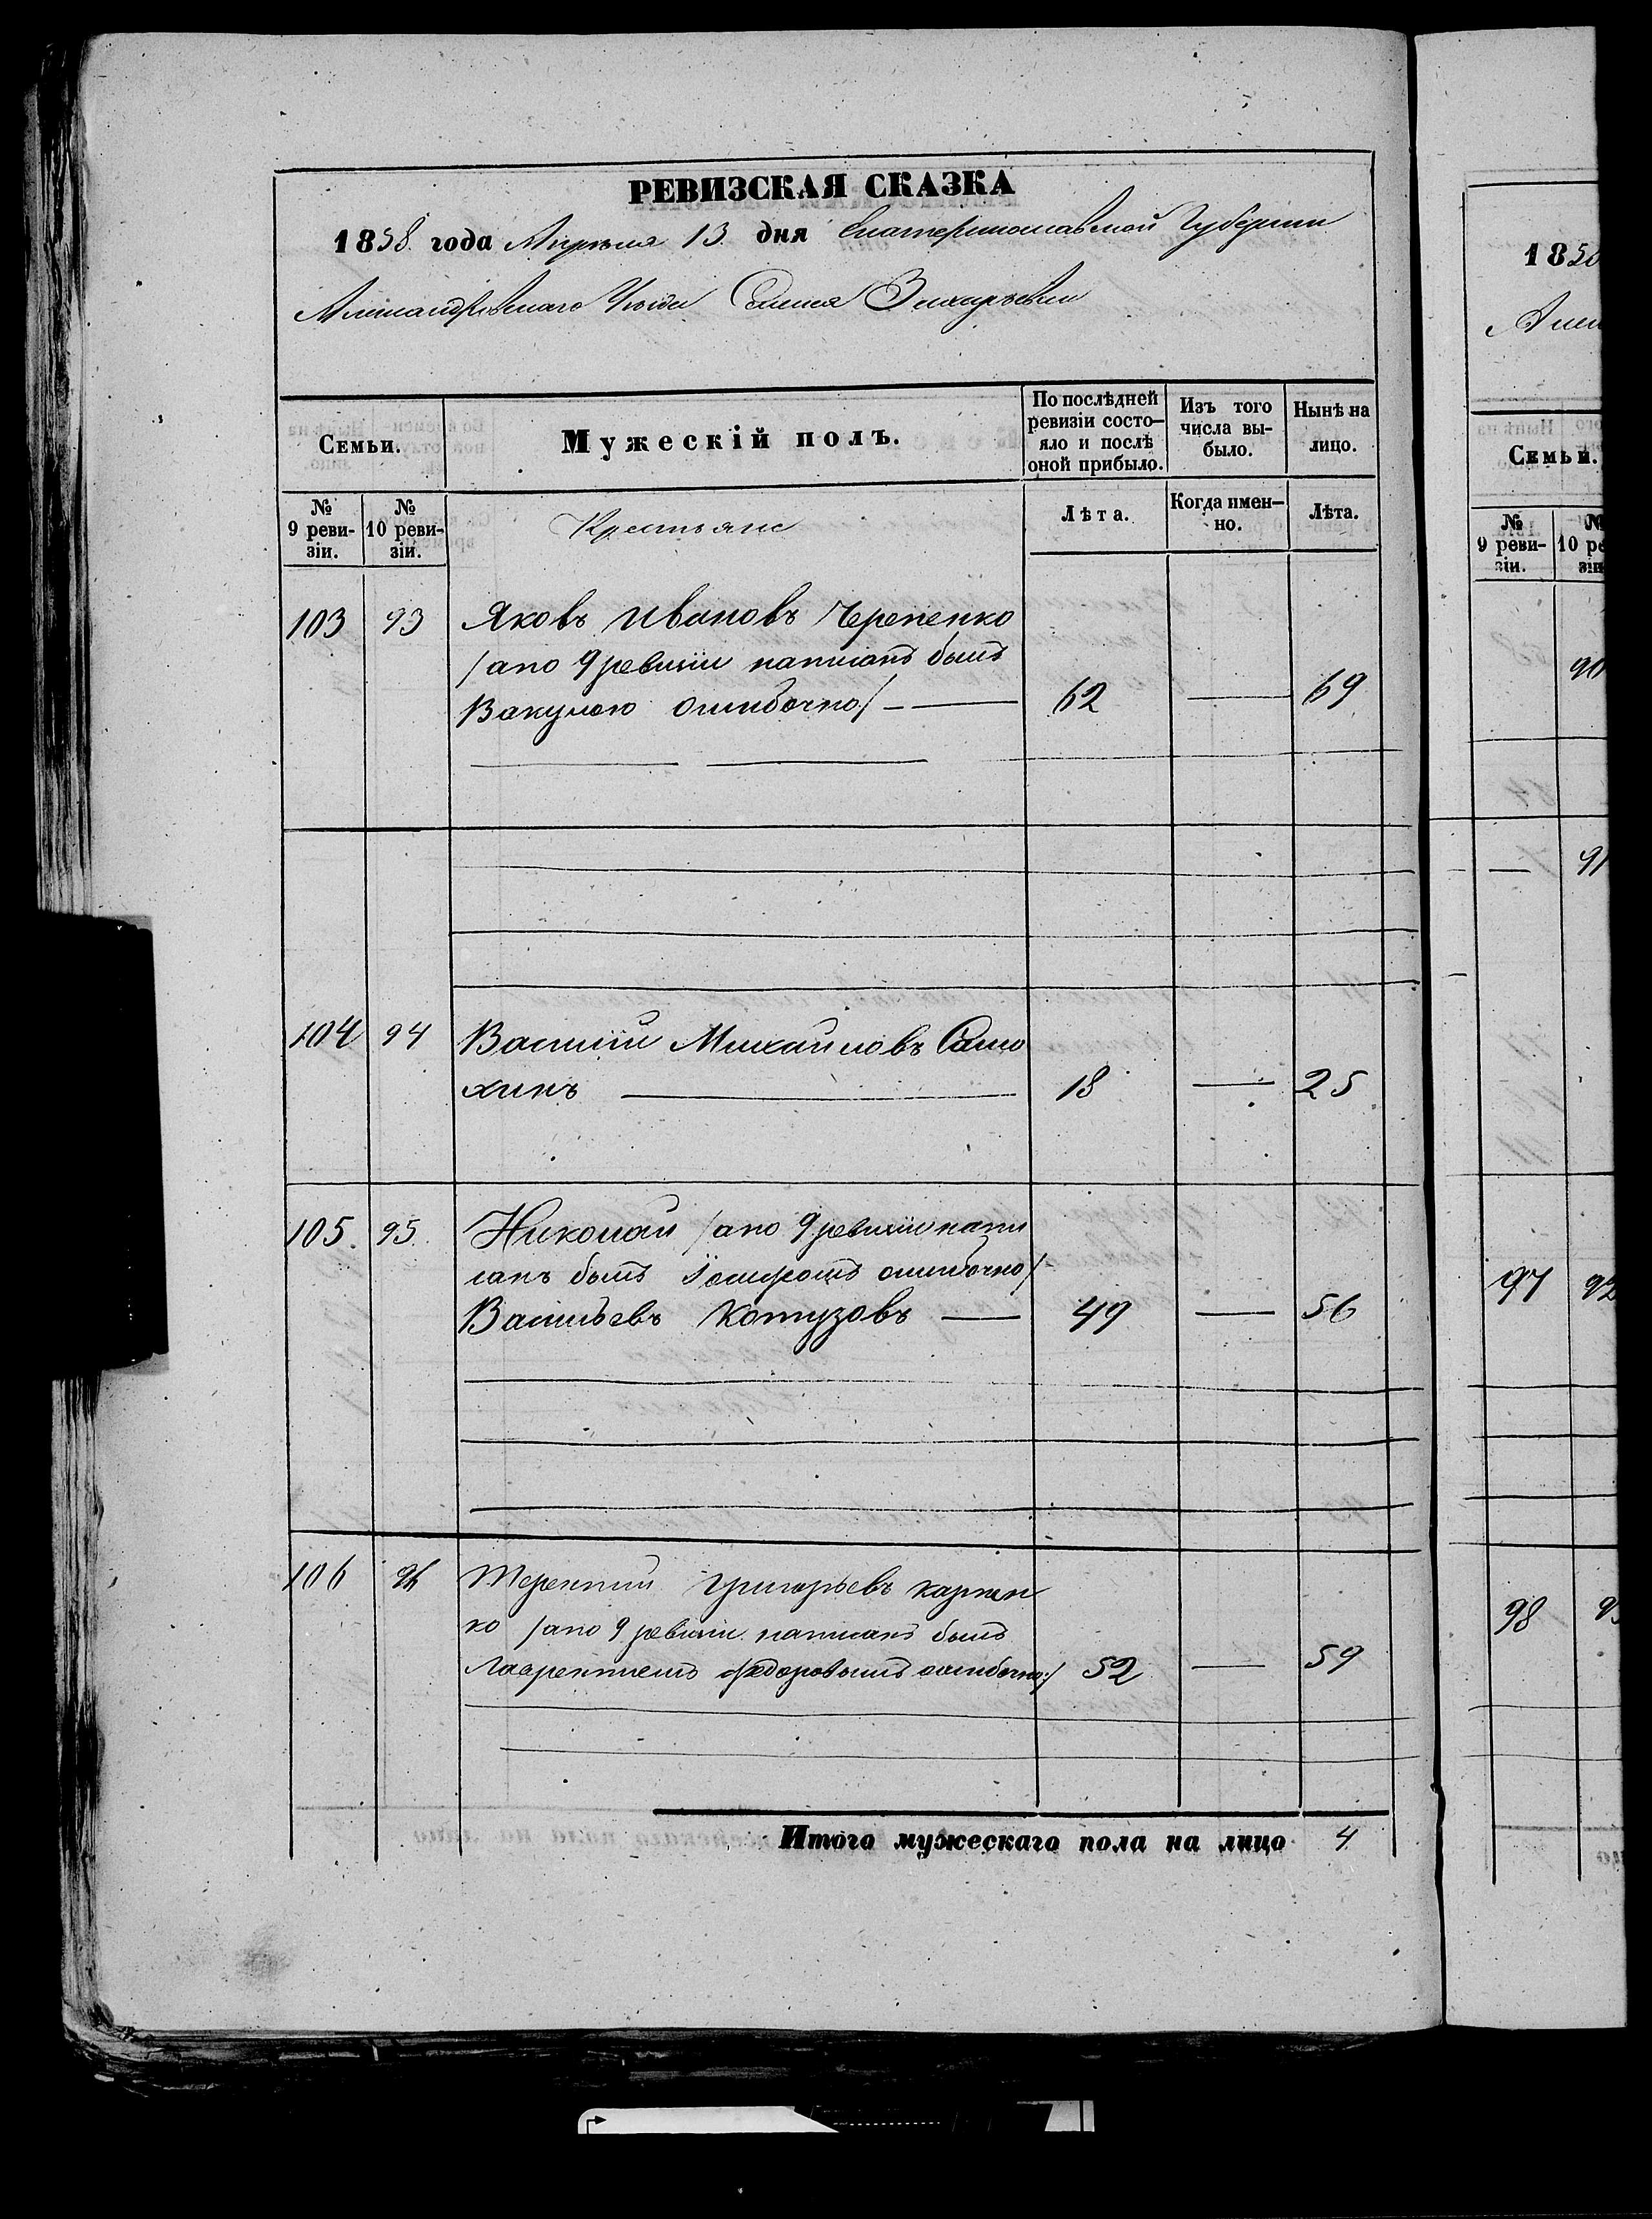 РЕВИЗСКАЯ СКАЗКА
1858. года Апрѣля 13. дня Екатеринославской Губерніи
Александровскаго Уѣзда Селенія Захарьевки
Семьи.
Мужескій полъ.
По послѣдней ревизіи состо-
яло и послѣ оной прибыло.
Изъ того числа вы-
было.
Нынѣ на лицо.
№ 9 реви-
зіи.
№ 10 реви-
зіи.
Крестьяне
Лѣта.
Когда имен-
но.
Лѣта.
103 93 Яковъ Ивановъ Черепенко
/а по 9 ревизіи написанъ былъ
Вакулою ошибочно/ — 62 — 69
104 94 Василій Михайловъ Само
хинъ — 18 — 25
105. 95. Николай /а по 9 ревизіи напи
санъ былъ ошибочно/
Васильевъ Котузовъ — 49 — 56
106 96 Терентій Григорьевъ Карпен
ко /а по 9 ревизіи написанъ былъ
Лаврентіемъ Федоровымъ ошибочно/ 52 — 59
Итого мужескаго пола на лицо 4
185
Семьи.
№ 9 реви-
зіи.
90
91
97 92
98